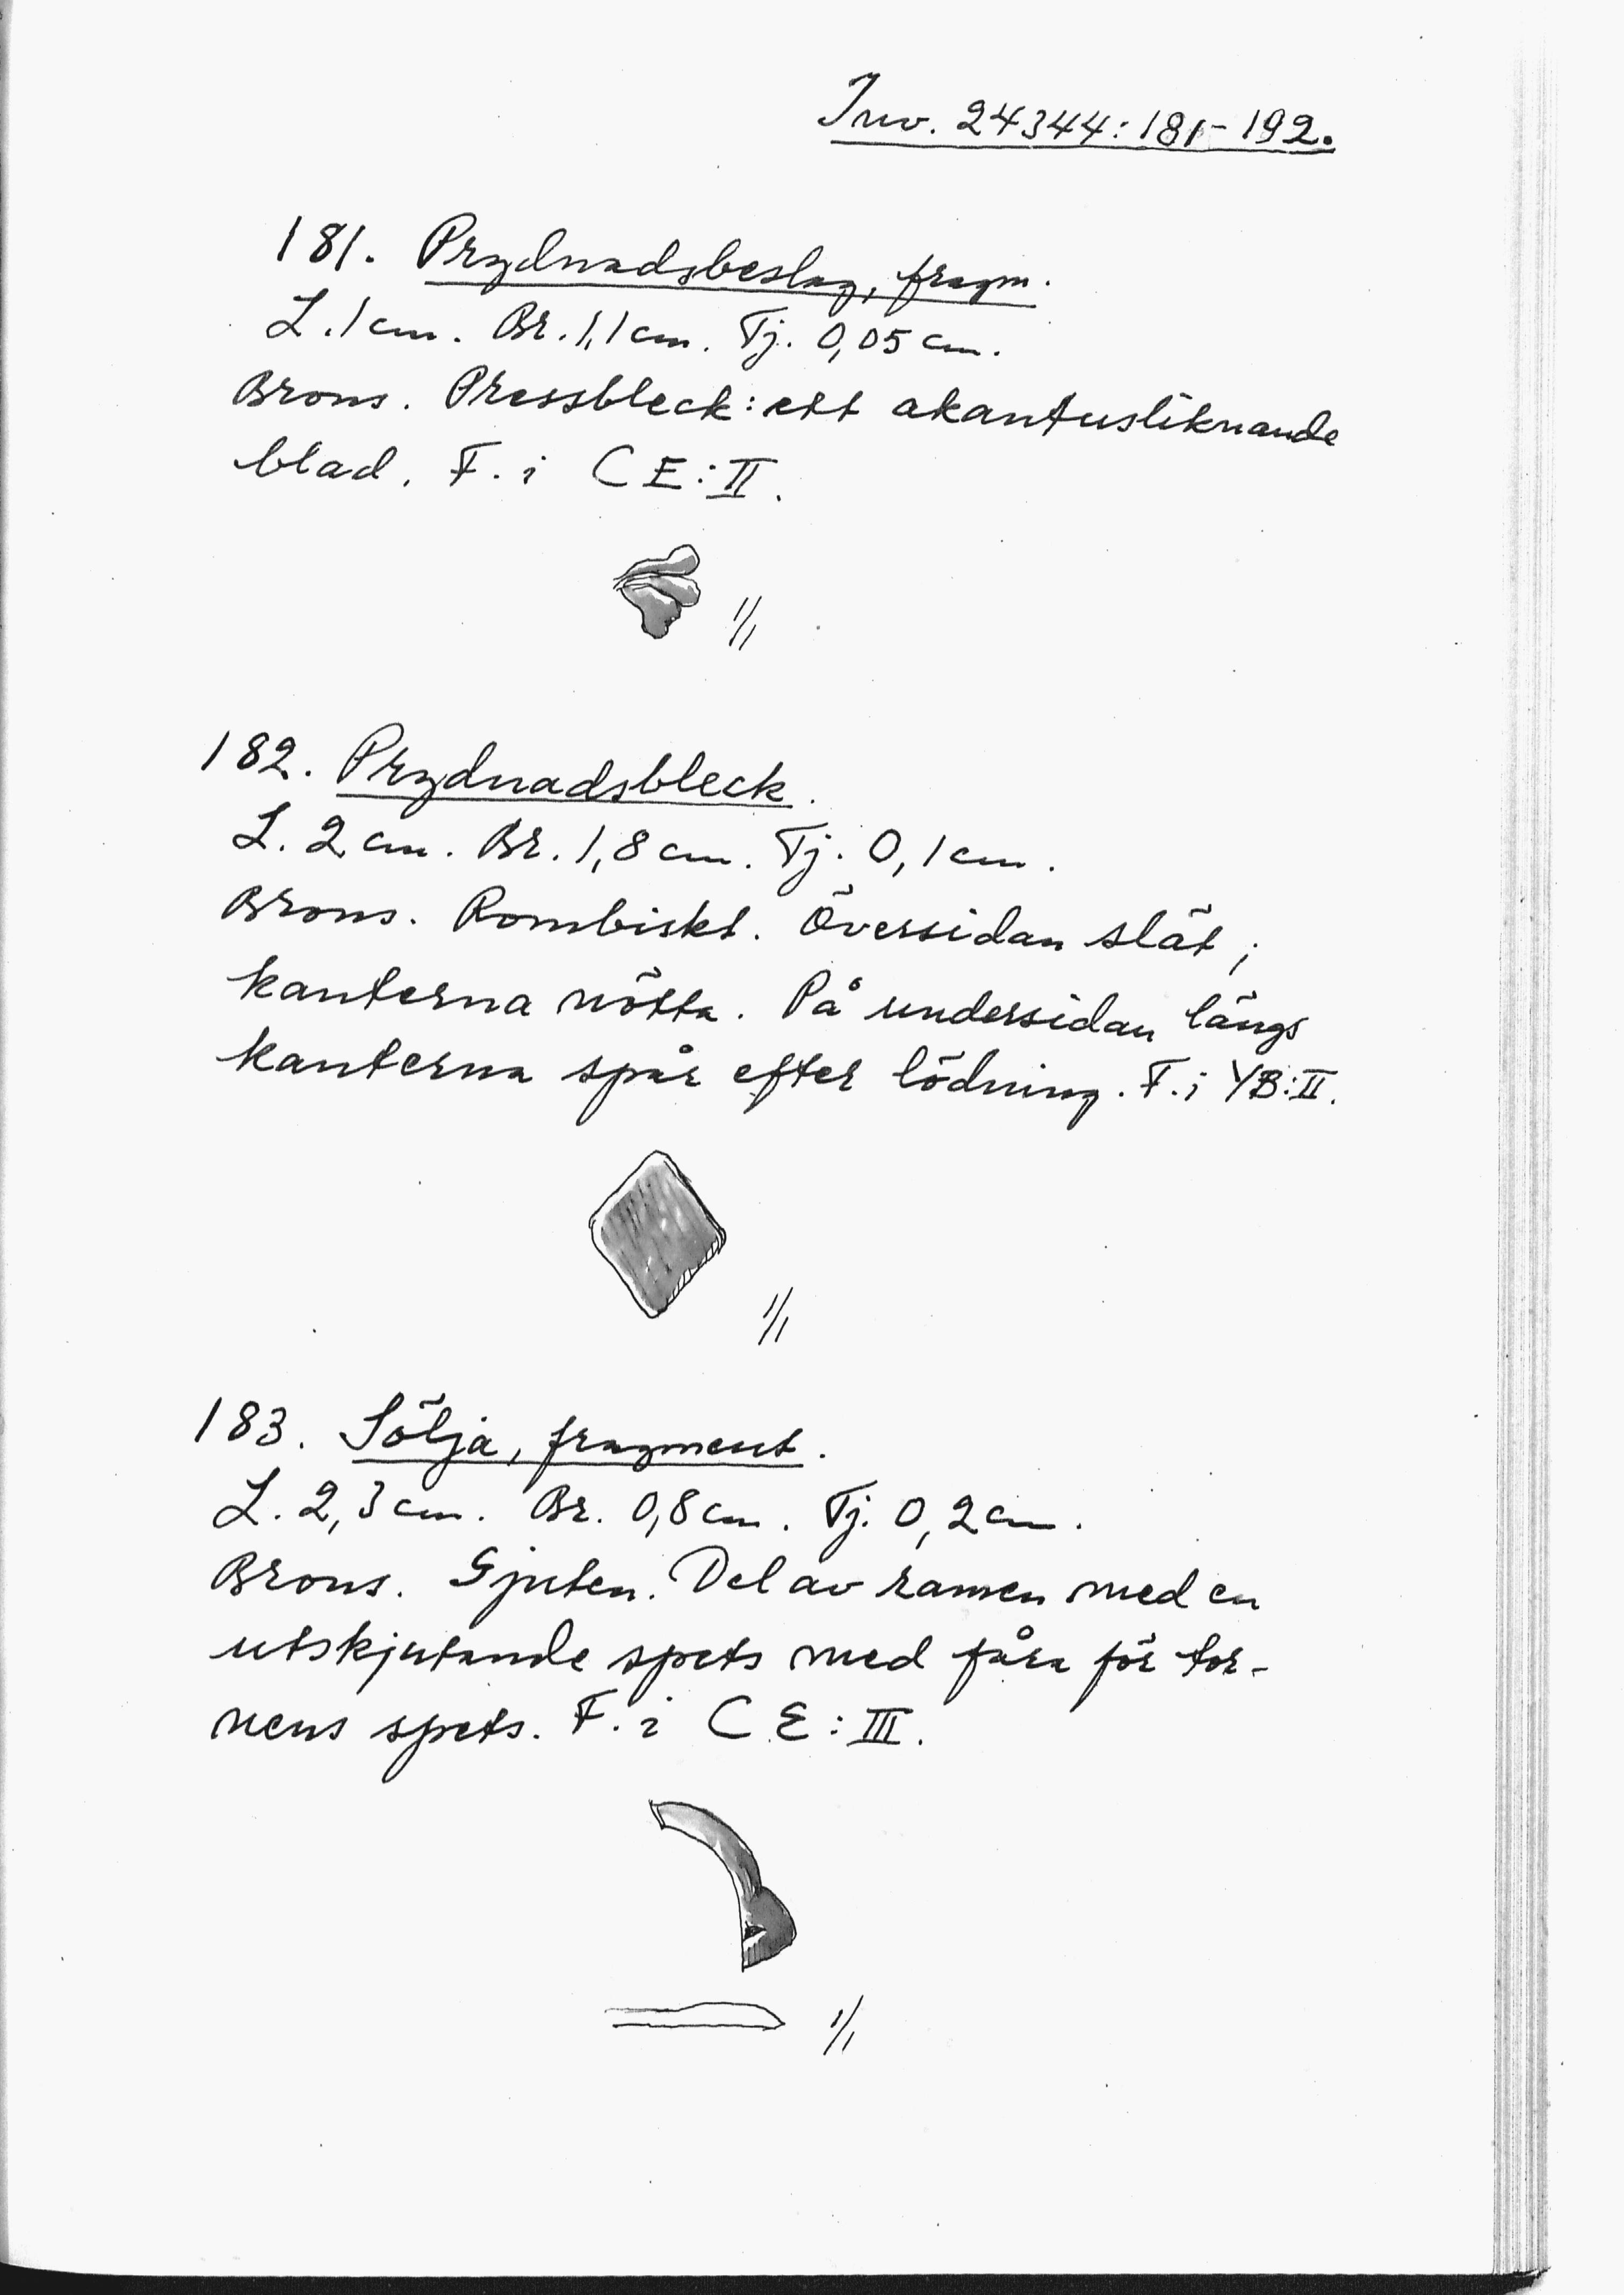 Inv. 24344:181-192.
181. Prydnadsbeslag, fragm.
L. 1 cm. Br. 1,1 cm. Tj. 0,05 cm.
Brons. Pressbleck: ett akantusliknande
blad. F. i CE:II.
1/1
182. Prydnadsbleck.
L. 2 cm. Br. 1,8 cm. Tj. 0,1 cm.
Brons. Rombiskt. Översidan slät;
kanterna nötta. På undersidan längs
kanterna spår efter lödning. F. i YB:II.
1/1
183. Sölja, fragment.
L. 2,3 cm. Br. 0,8 cm. Tj. 0,2 cm.
Brons. Gjuten. Del av ramen med en
utskjutande spets med fåra för tor-
nens spets. F. i CE:III.
1/1